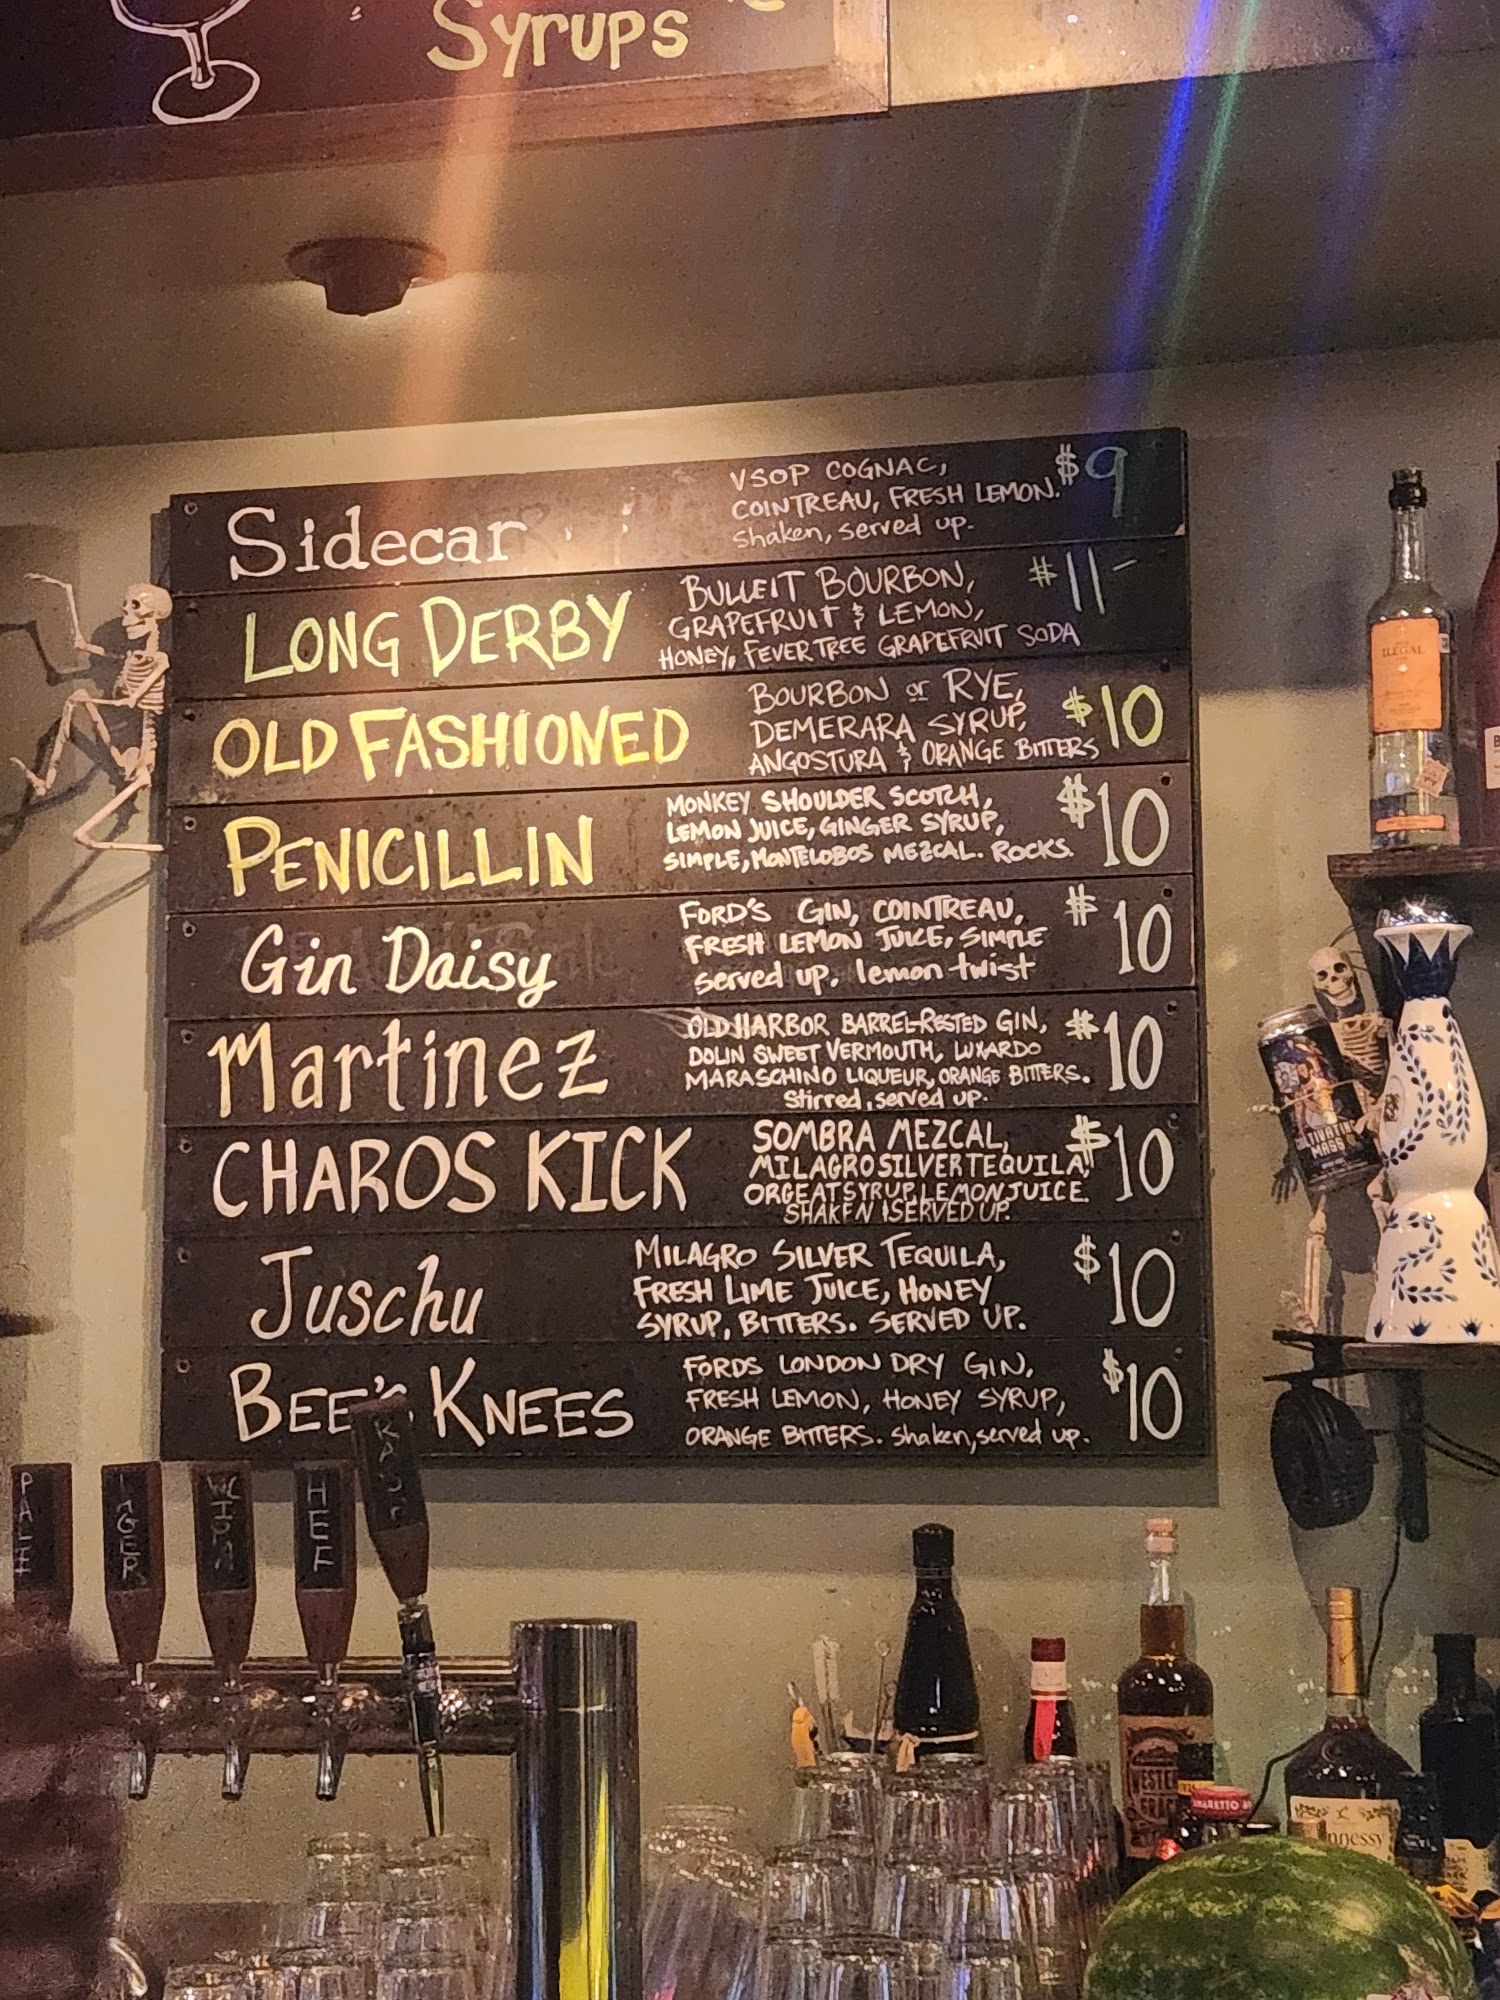 Syrups
Sidecar
VSOP COGNAC,
COINTREAU, FRESH LEMON.
Shaken, served up.
$9
LONG DERBY
BULLEIT BOURBON,
GRAPEFRUIT & LEMON,
HONEY, FEVER TREE GRAPEFRUIT SODA
$11-
OLD FASHIONED
BOURBON or RYE,
DEMERARA SYRUP,
ANGOSTURA & ORANGE BITTERS
$10
PENICILLIN
MONKEY SHOULDER SCOTCH,
LEMON JUICE, GINGER SYRUP,
SIMPLE, MONTELOBOS MEZCAL. ROCKS.
$10
Gin Daisy
FORD'S GIN, COINTREAU,
FRESH LEMON JUICE, SIMPLE
served up. lemon twist
$10
Martinez
OLD HARBOR BARREL-RESTED GIN,
DOLIN SWEET VERMOUTH, LUXARDO
MARASCHINO LIQUEUR, ORANGE BITTERS.
Stirred, served up.
$10
CHAROS KICK
SOMBRA MEZCAL,
MILAGRO SILVER TEQUILA,
ORGEAT SYRUP, LEMON JUICE.
SHAKEN & SERVED UP.
$10
Juschu
MILAGRO SILVER TEQUILA,
FRESH LIME JUICE, HONEY
SYRUP, BITTERS. SERVED UP.
$10
BEE'S KNEES
FORDS LONDON DRY GIN,
FRESH LEMON, HONEY SYRUP,
ORANGE BITTERS. Shaken, served up.
$10
ILEGAL
PALE
HEF
AMARETTO